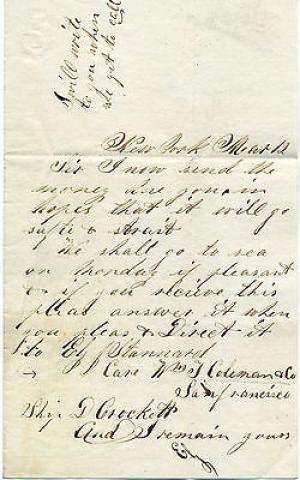 I will write
to you when
we get to
New York March
Sir I now send the
money due you in
hopes that it will go
safe & strait
We shall go to sea
on Monday if pleasant
& if you recieve this
pleas answer it when
you pleas & Direct it
to Ey Stannard
Care Wm T Coleman & Co
San francisco
Ship D Crockett
And I remain yours
Ey